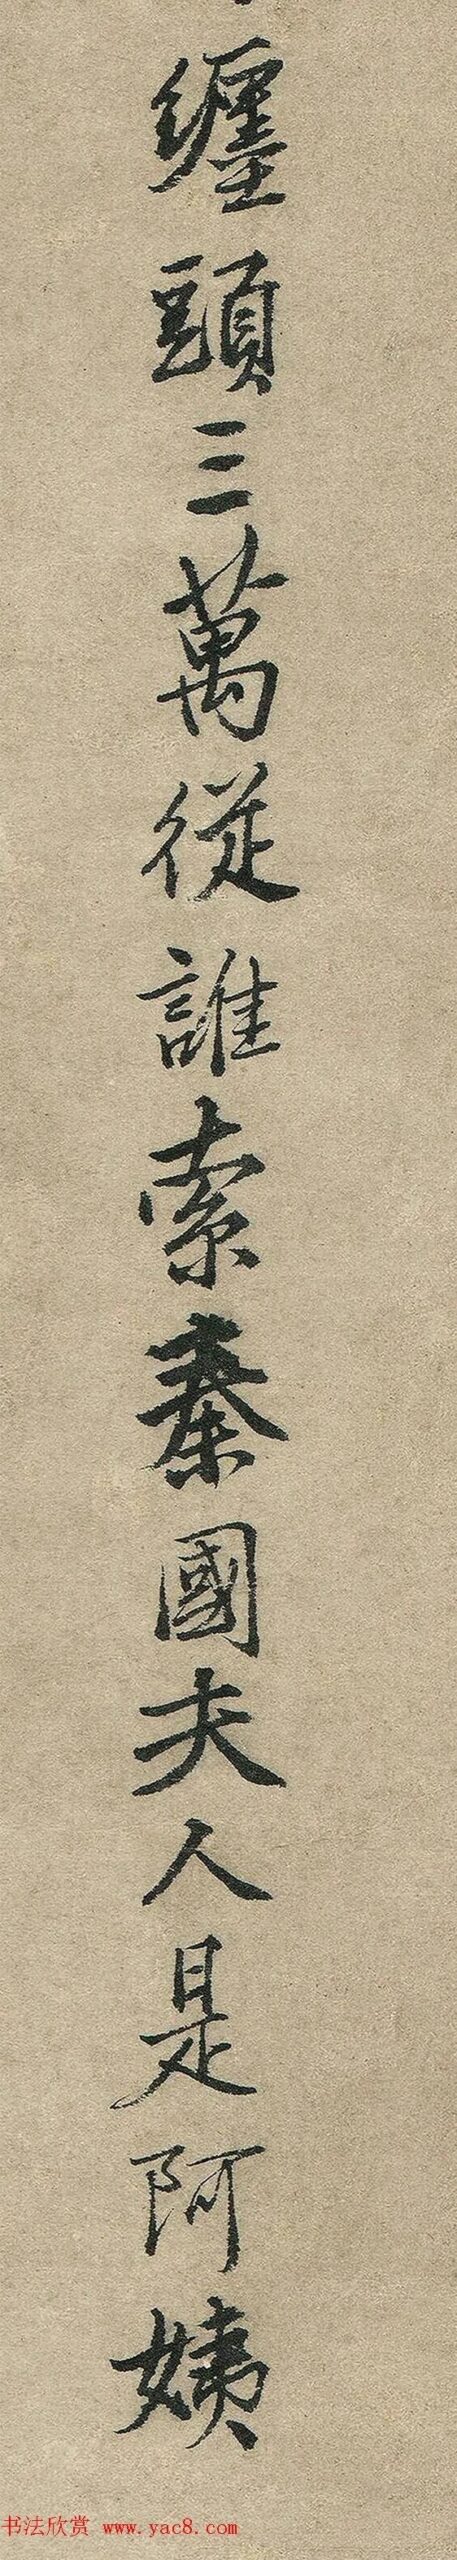 纏頭三萬從誰索秦國夫人是阿姨
书法欣赏 www.yac8.com